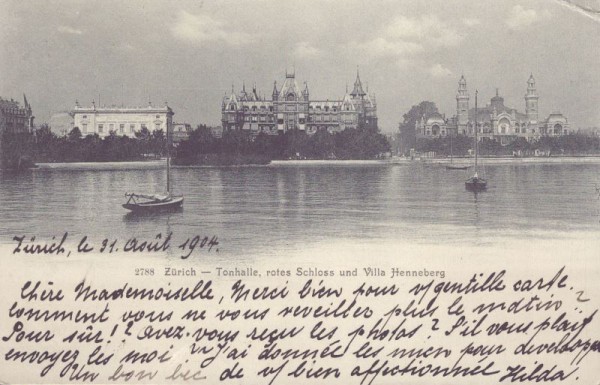 Zürich, le 31. Août 1904.
2788 Zürich — Tonhalle, rotes Schloss und Villa Henneberg
Chère Mademoiselle, Merci bien pour v/gentille carte.
Comment vous ne vous reveiller plus le matin?
Pour sûr!? avez-vous reçu les photos? S'il vous plait
envoyez les moi J'ai donnée les mien pour developper
Un bon bec de v/ bien affectionnée Hilda.